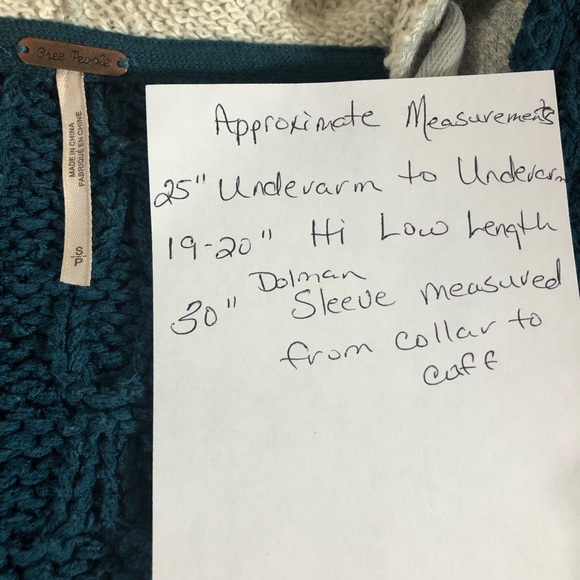 Free People
MADE IN CHINA
FABRIQUÉ EN CHINE
S/P
Approximate Measurements
25" Underarm to Underarm
19-20" Hi Low Length
Dolman
30" Sleeve measured
from collar to
cuff